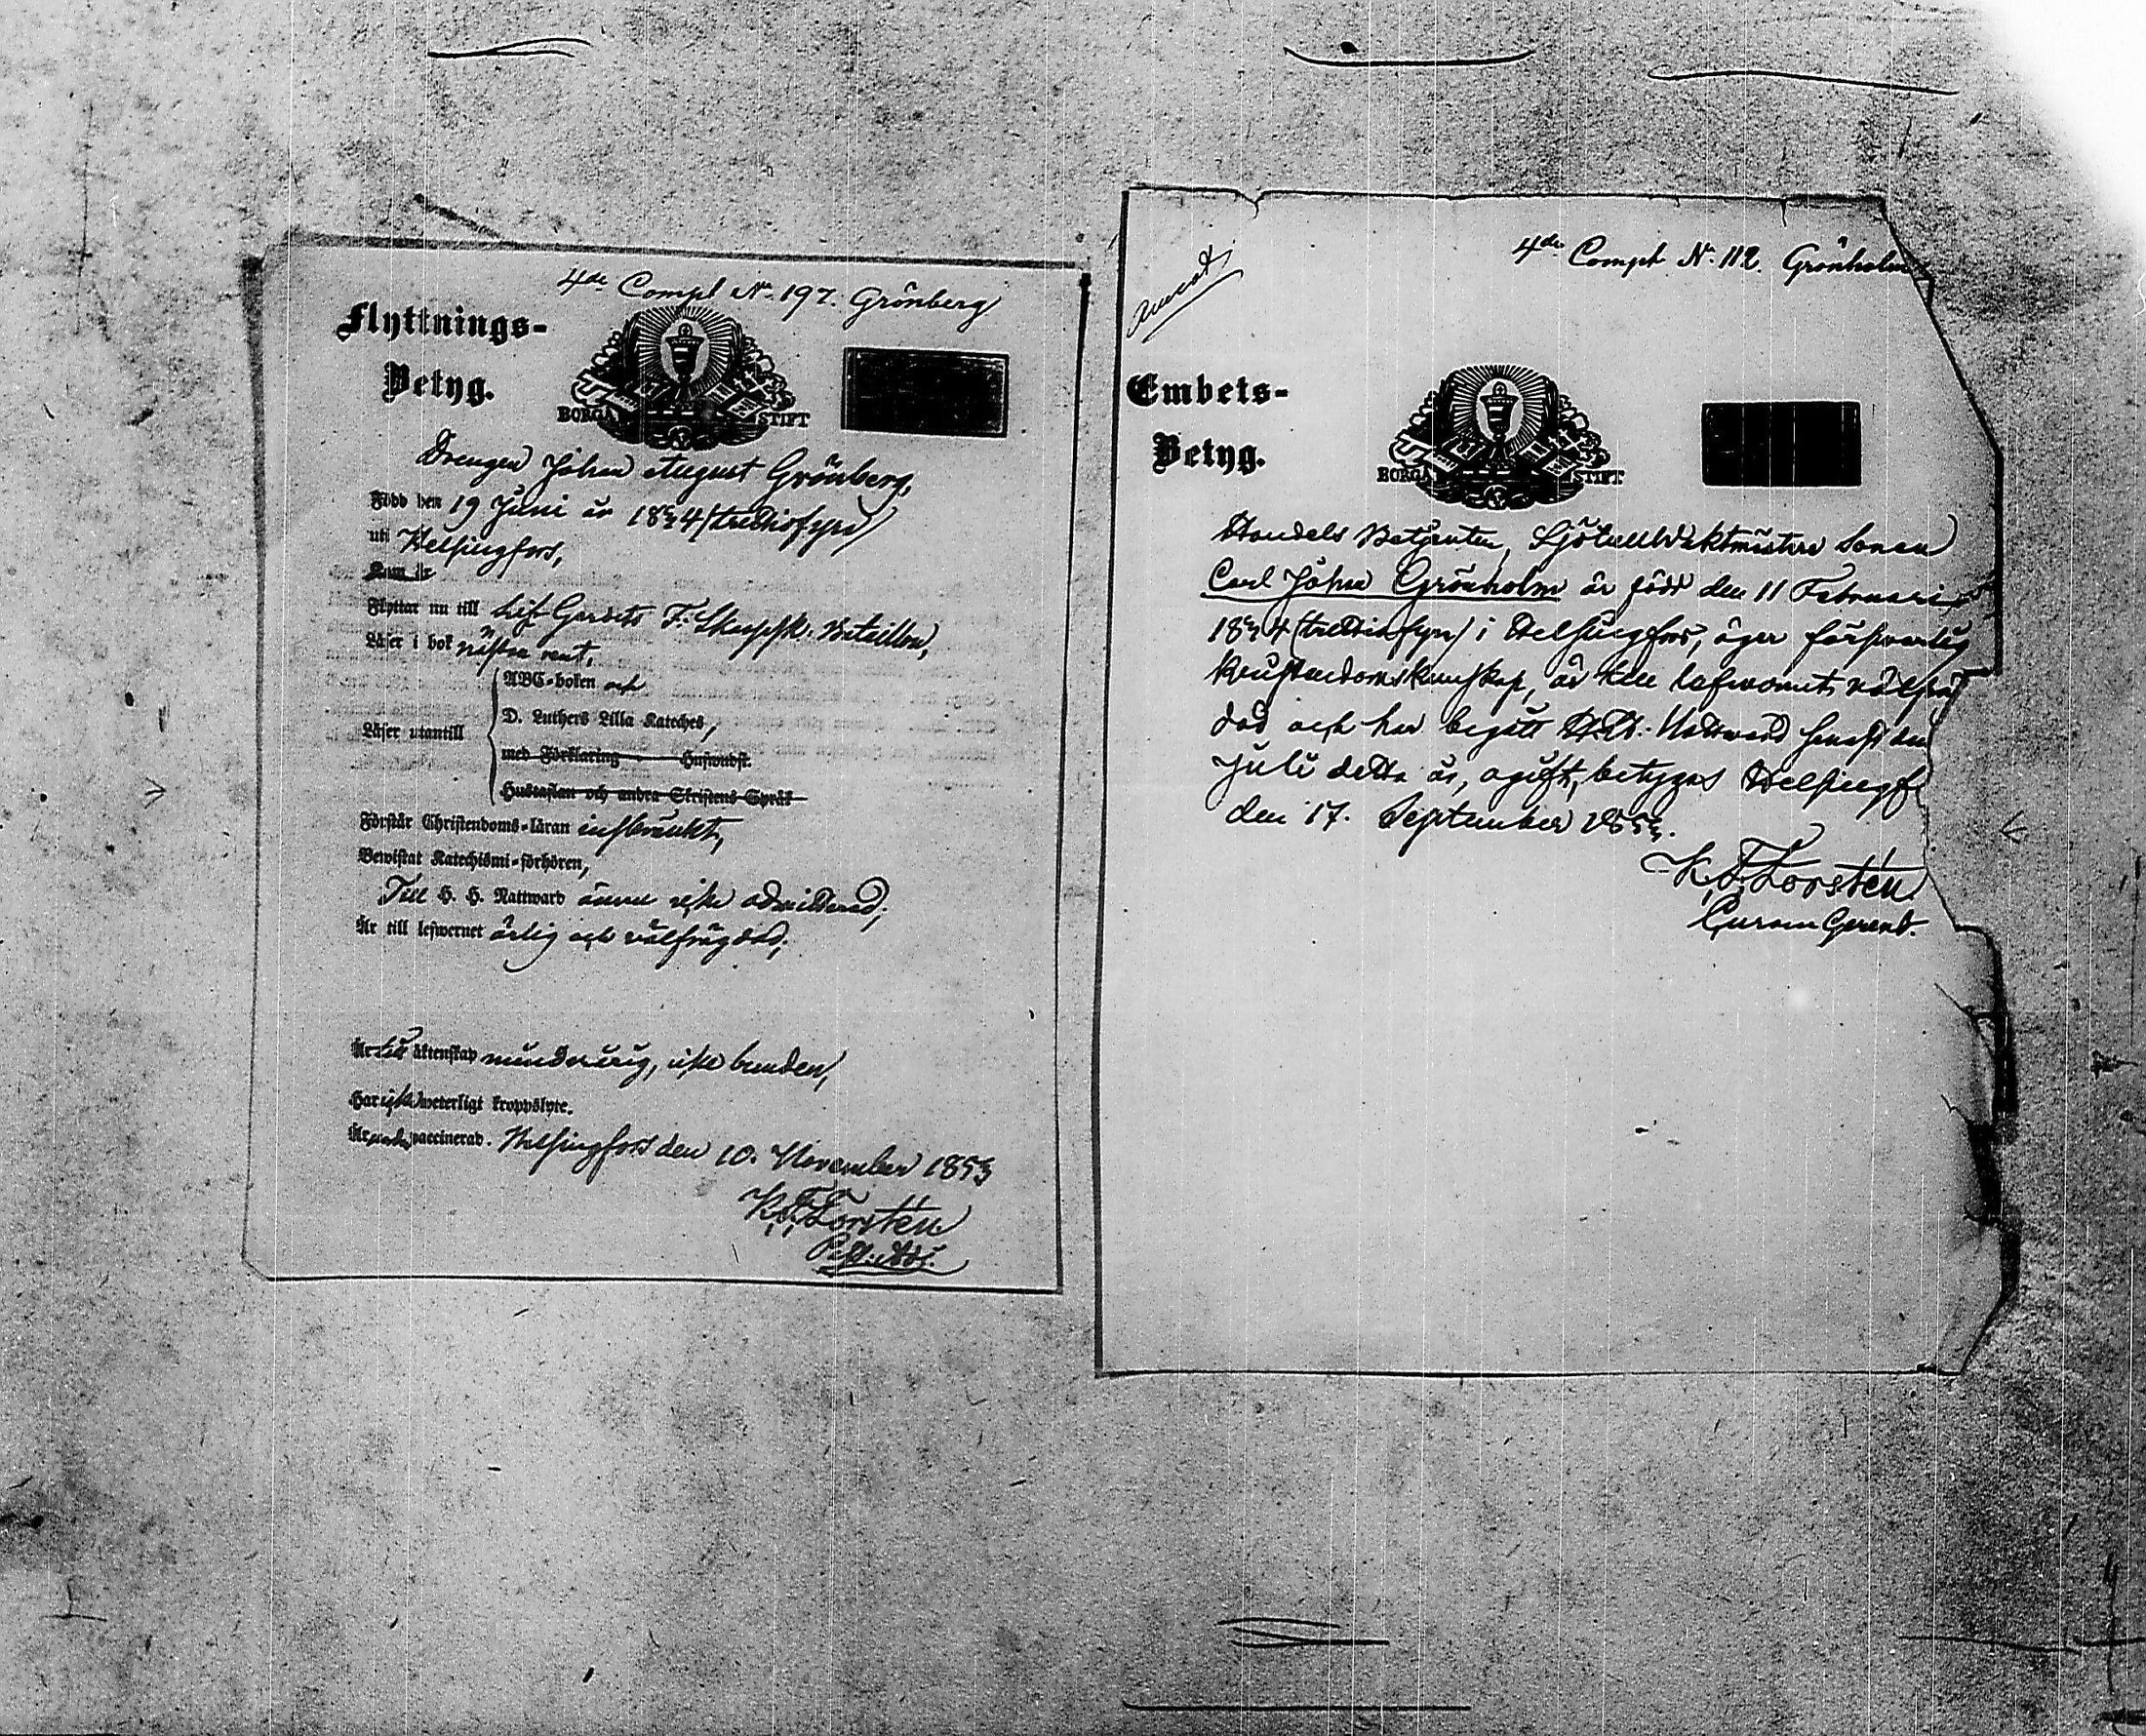 4de Comp. N. 197. Grönberg
Flyttnings-
Betyg.
BORGÅ STIFT
Drengen Johan August Grönberg,
Född den 19 Juni år 1834 (trettiofyra)
uti Helsingfors,
Kom år
Flyttar nu till Lif Gardets F. Skarpsk. Bataillon,
Läser i bok nästan rent,
ABC-boken och
D. Luthers Lilla Kateches,
Läser utantill
med Förklaring Huswudst.
Hustaflan och andra Skriftens Språk
Förstår Christendoms-läran inskränkt,
Bewistat Katechismi-förhören,
Till H. H. Nattward ännu icke admitterad;
Är till lefwernet ärlig och välfrägdad;
Är till äktenskap minderårig, icke bunden,
Har icke weterligt kroppslyte.
Är vaccinerad. Helsingfors den 10. November 1853
K. F. Forstén
4de Comp. N. 112. Grönholm
Embets-
Betyg.
BORGÅ STIFT
Handels Betjenten, Sjötullvaktmästare Sonen
Carl Johan Grönholm är född den 11 Februari
1834 (trettiofyra) i Helsingfors, äger försvarlig
Kristendomskunskap, är till lefvernet välfräg
dad och har begått H. H. Nattvard senast den
Juli detta år, ogift, betygas Helsingf
den 17. September 1853.
K. F. Forstén
Curam Gerent.